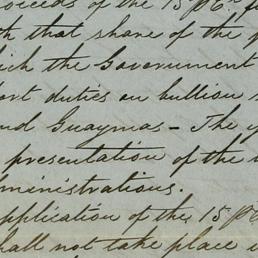 oceeds of the 15 pCt
th that share of the
hich the Government
port duties on bullion
and Guaymas - The
presentation of the
ministrations.
pplication of the 15 pC
hall not take place